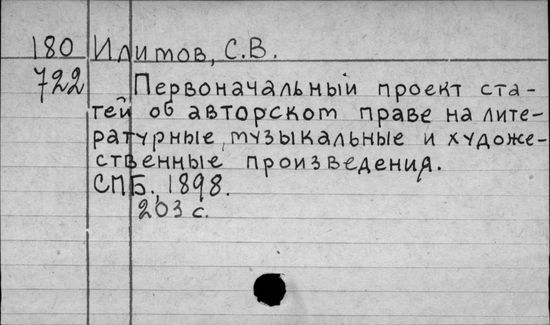 180 Илитов, С.В.
722 Первоначальный проект ста-
тей об авторском праве на лите-
ратурные, музыкальные и художе-
ственные произведения.
СПБ., 1898.
203 с.